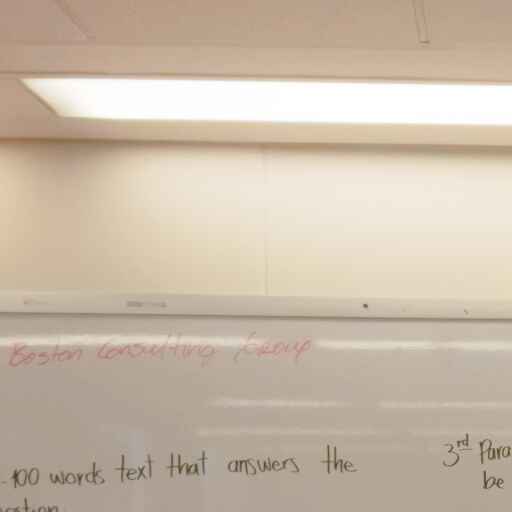 Boston Consulting Group
-100 words text that answers the
3rd Para
be